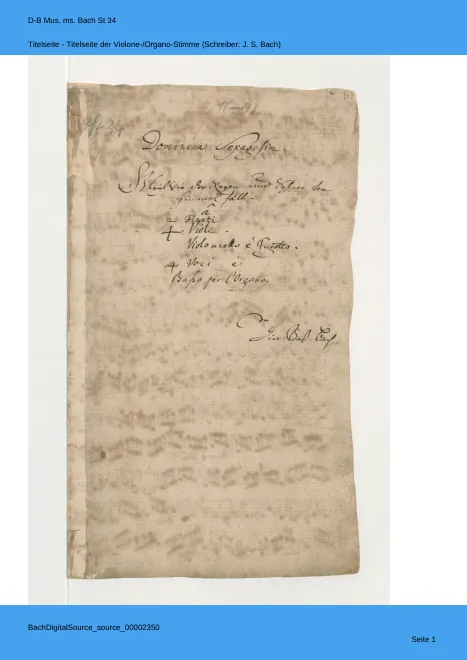 D-B Mus. ms. Bach St 34
Titelseite - Titelseite der Violone-/Organo-Stimme (Schreiber: J. S. Bach)
St 34
Dominica Sexagesim:
Gleich wie der Regen und Schnee vom
Himmel fällt.
a
2 Flauti
4 Viole.
Violoncello è Fagotto.
4 Voci è
Basso per l'Organo.
di
Giov. Bast. Bach.
BachDigitalSource_source_00002350
Seite 1